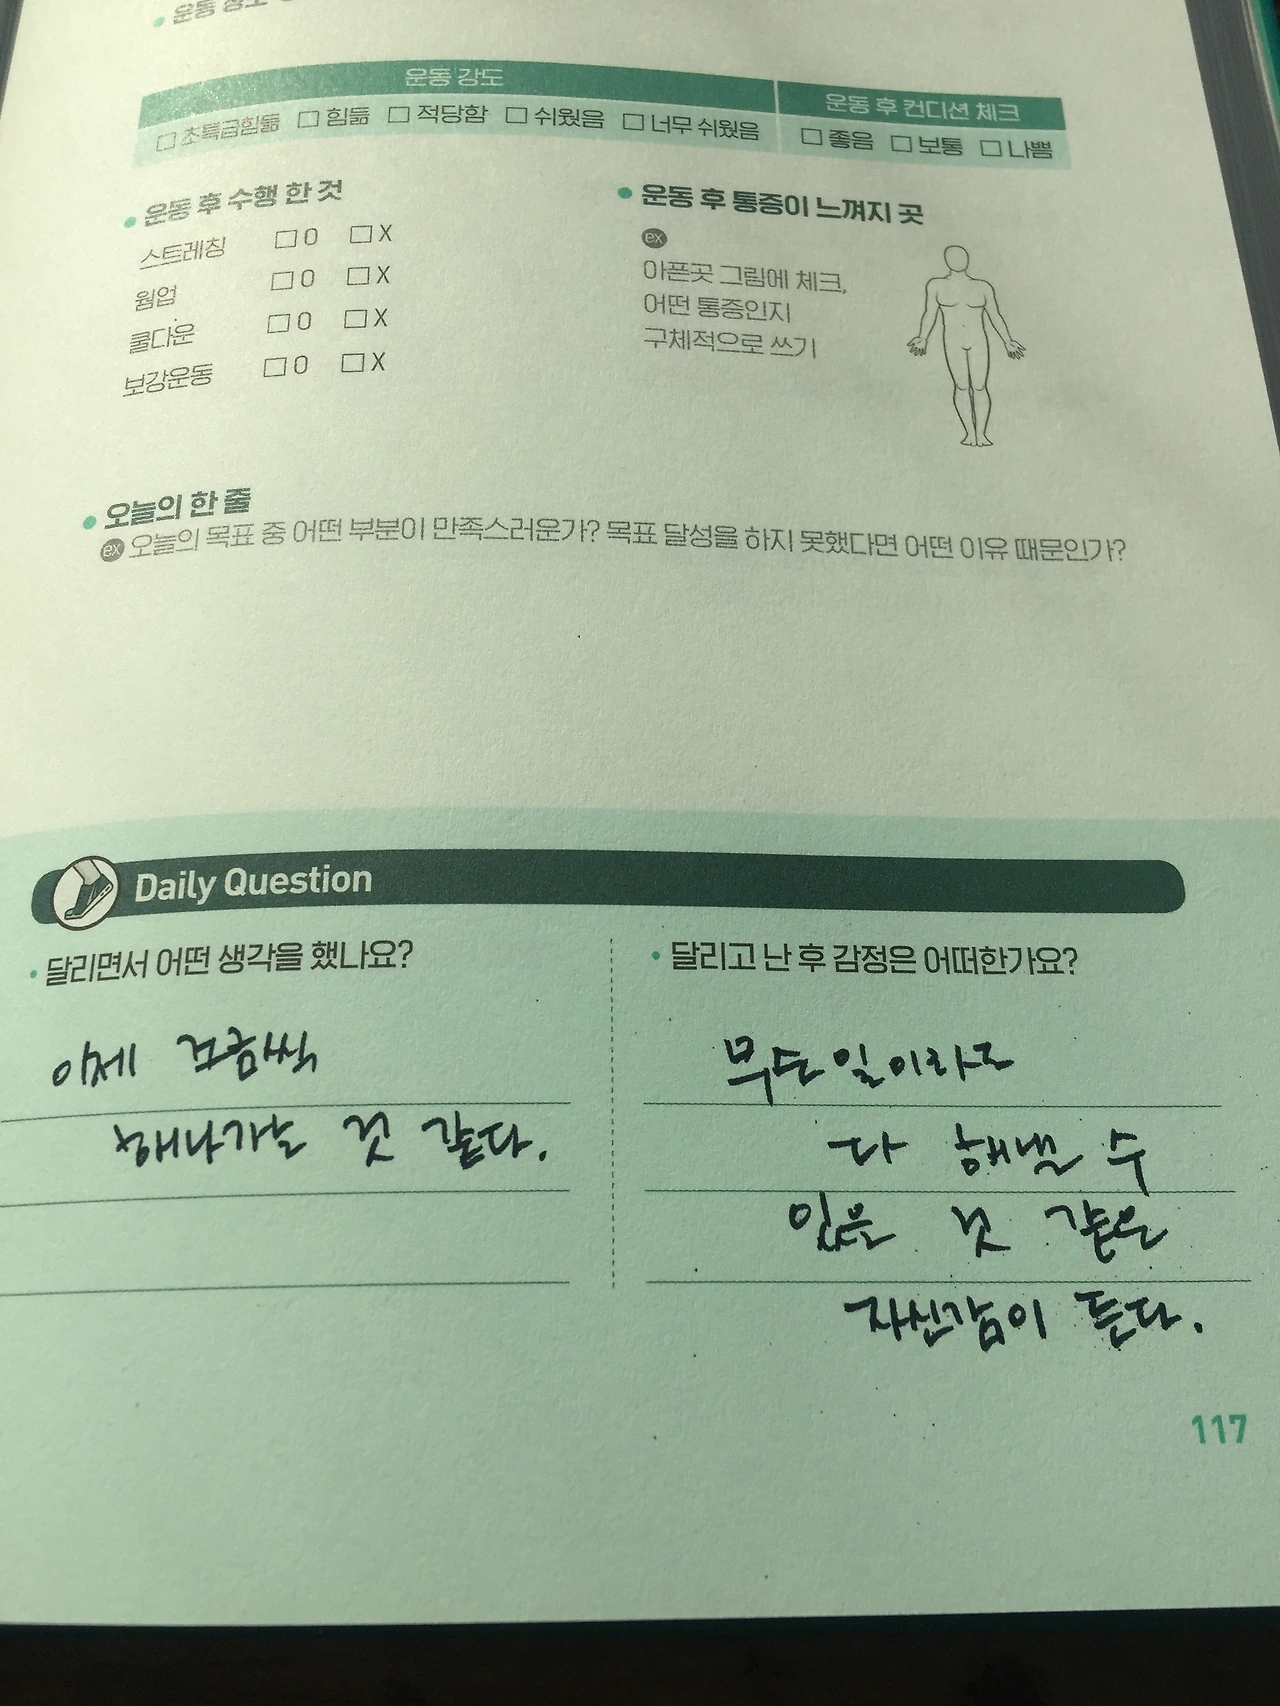 • 운동 강도
운동 강도
운동 후 컨디션 체크
□ 초특급힘듦 □ 힘듦 □ 적당함 □ 쉬웠음 □ 너무 쉬웠음
□ 좋음 □ 보통 □ 나쁨
• 운동 후 수행 한 것
스트레칭 □ O □ X
웜업 □ O □ X
쿨다운 □ O □ X
보강운동 □ O □ X
• 운동 후 통증이 느껴지 곳
ex
아픈곳 그림에 체크,
어떤 통증인지
구체적으로 쓰기
• 오늘의 한 줄
ex 오늘의 목표 중 어떤 부분이 만족스러운가? 목표 달성을 하지 못했다면 어떤 이유 때문인가?
Daily Question
• 달리면서 어떤 생각을 했나요?
이제 조금씩
해나가는 것 같다.
• 달리고 난 후 감정은 어떠한가요?
무슨일이라도
다 해낼 수
있을 것 같은
자신감이 든다.
117